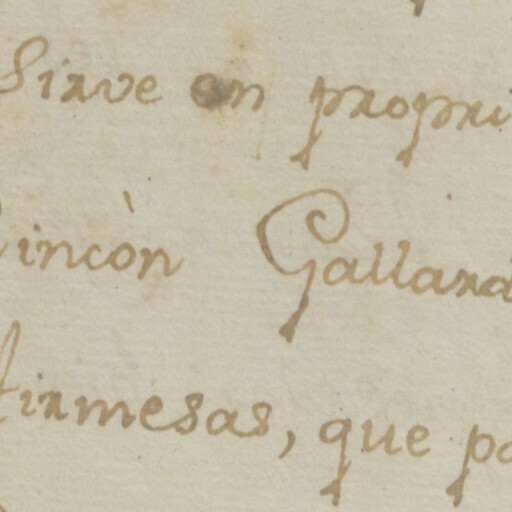 Sirve en propri
incòn Gallard
firmesas, que pa